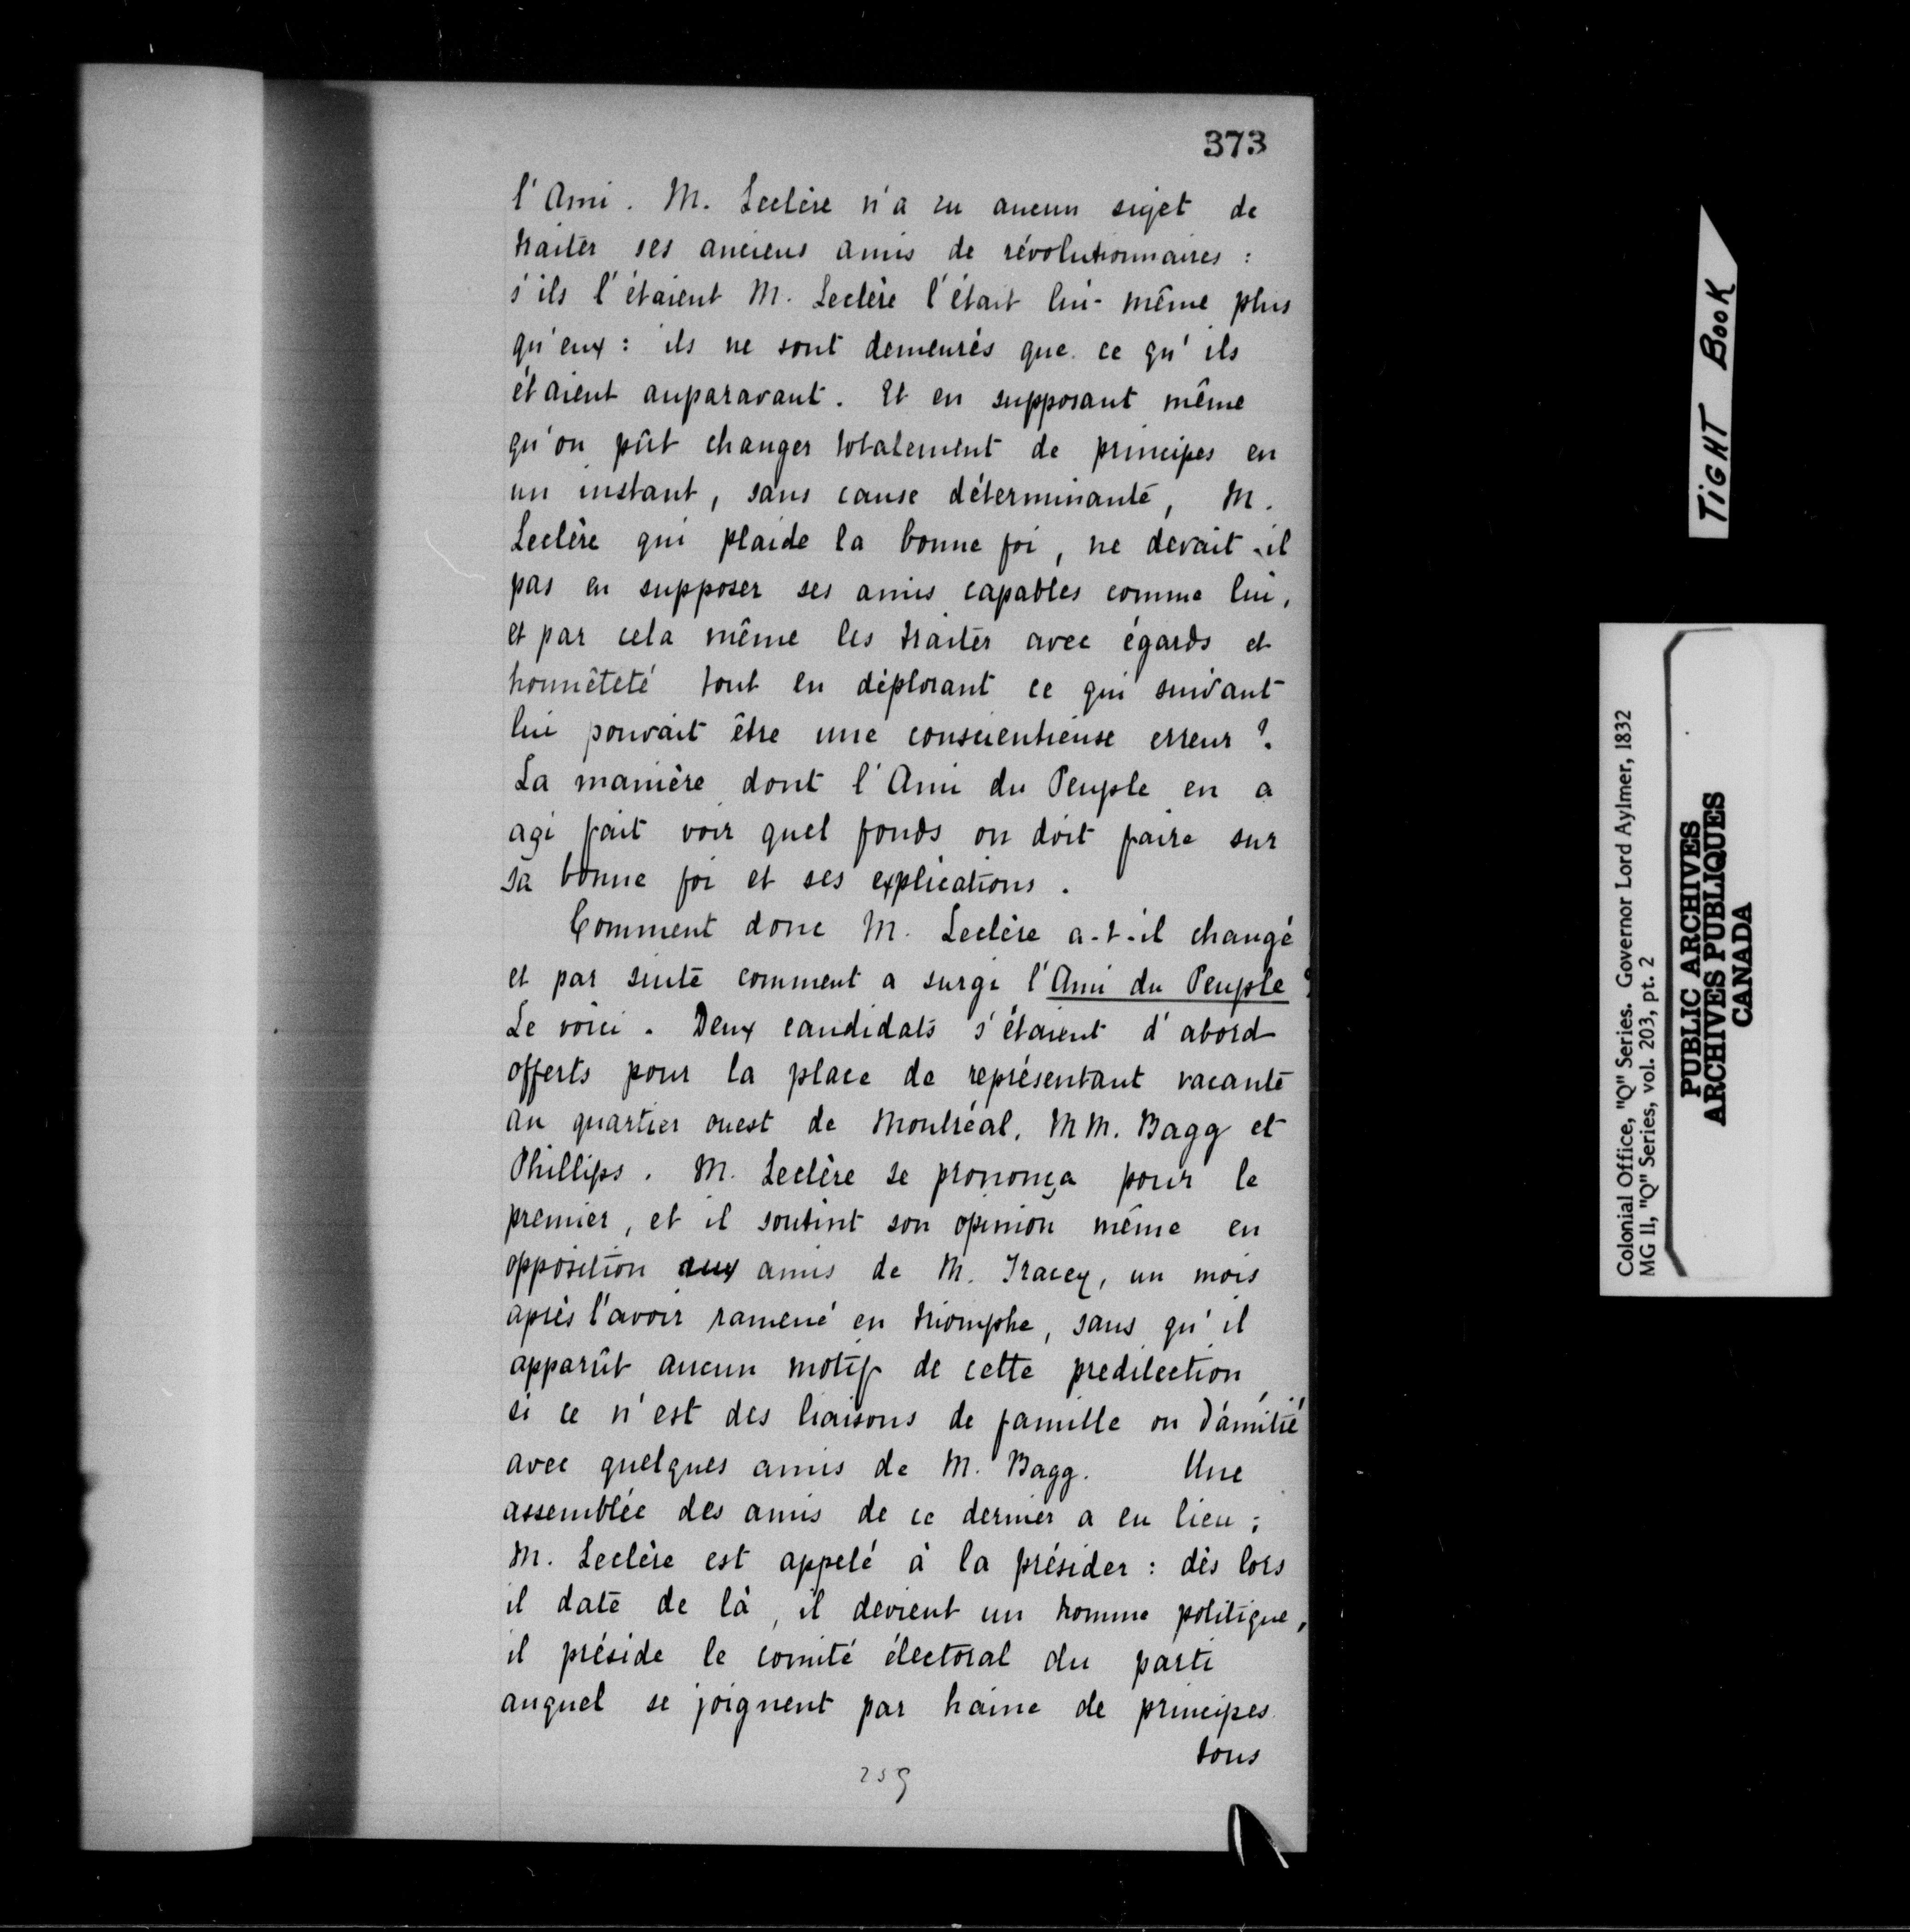 373
l'Ami. M. Leclère n'a eu aucun sujet de
traiter ses anciens amis de révolutionnaires :
s'ils l'étaient M. Leclère l'était lui-même plus
qu'eux : ils ne sont demeurés que ce qu'ils
étaient auparavant. Et en supposant même
qu'on pût changer totalement de principes en
un instant, sans cause déterminante, M.
Leclère qui plaide la bonne foi, ne devait-il
pas en supposer ses amis capables comme lui,
et par cela même les traiter avec égards et
honnêteté tout en déplorant ce qui suivant
lui pouvait être une conscientieuse erreur ?
La manière dont l'Ami du Peuple en a
agi fait voir quel fonds on doit faire sur
sa bonne foi et ses explications.
Comment donc M. Leclère a-t-il changé
et par suite comment a surgi l'Ami du Peuple ?
Le voici. Deux candidats s'étaient d'abord
offerts pour la place de représentant vacante
au quartier ouest de Montréal, MM. Bagg et
Phillips. M. Leclère se prononça pour le
premier, et il soutint son opinion même en
opposition aux amis de M. Tracey, un mois
après l'avoir ramené en triomphe, sans qu'il
apparût aucun motif de cette predilection,
si ce n'est des liaisons de famille ou d'amitié
avec quelques amis de M. Bagg. Une
assemblée des amis de ce dernier a eu lieu ;
M. Leclère est appelé à la présider : dès lors
il date de là, il devient un homme politique,
il préside le comité électoral du parti
auquel se joignent par haine de principes
tous
259
TIGHT BOOK
Colonial Office, "Q" Series. Governor Lord Aylmer, 1832
MG 11, "Q" Series, vol. 203, pt. 2
PUBLIC ARCHIVES
ARCHIVES PUBLIQUES
CANADA